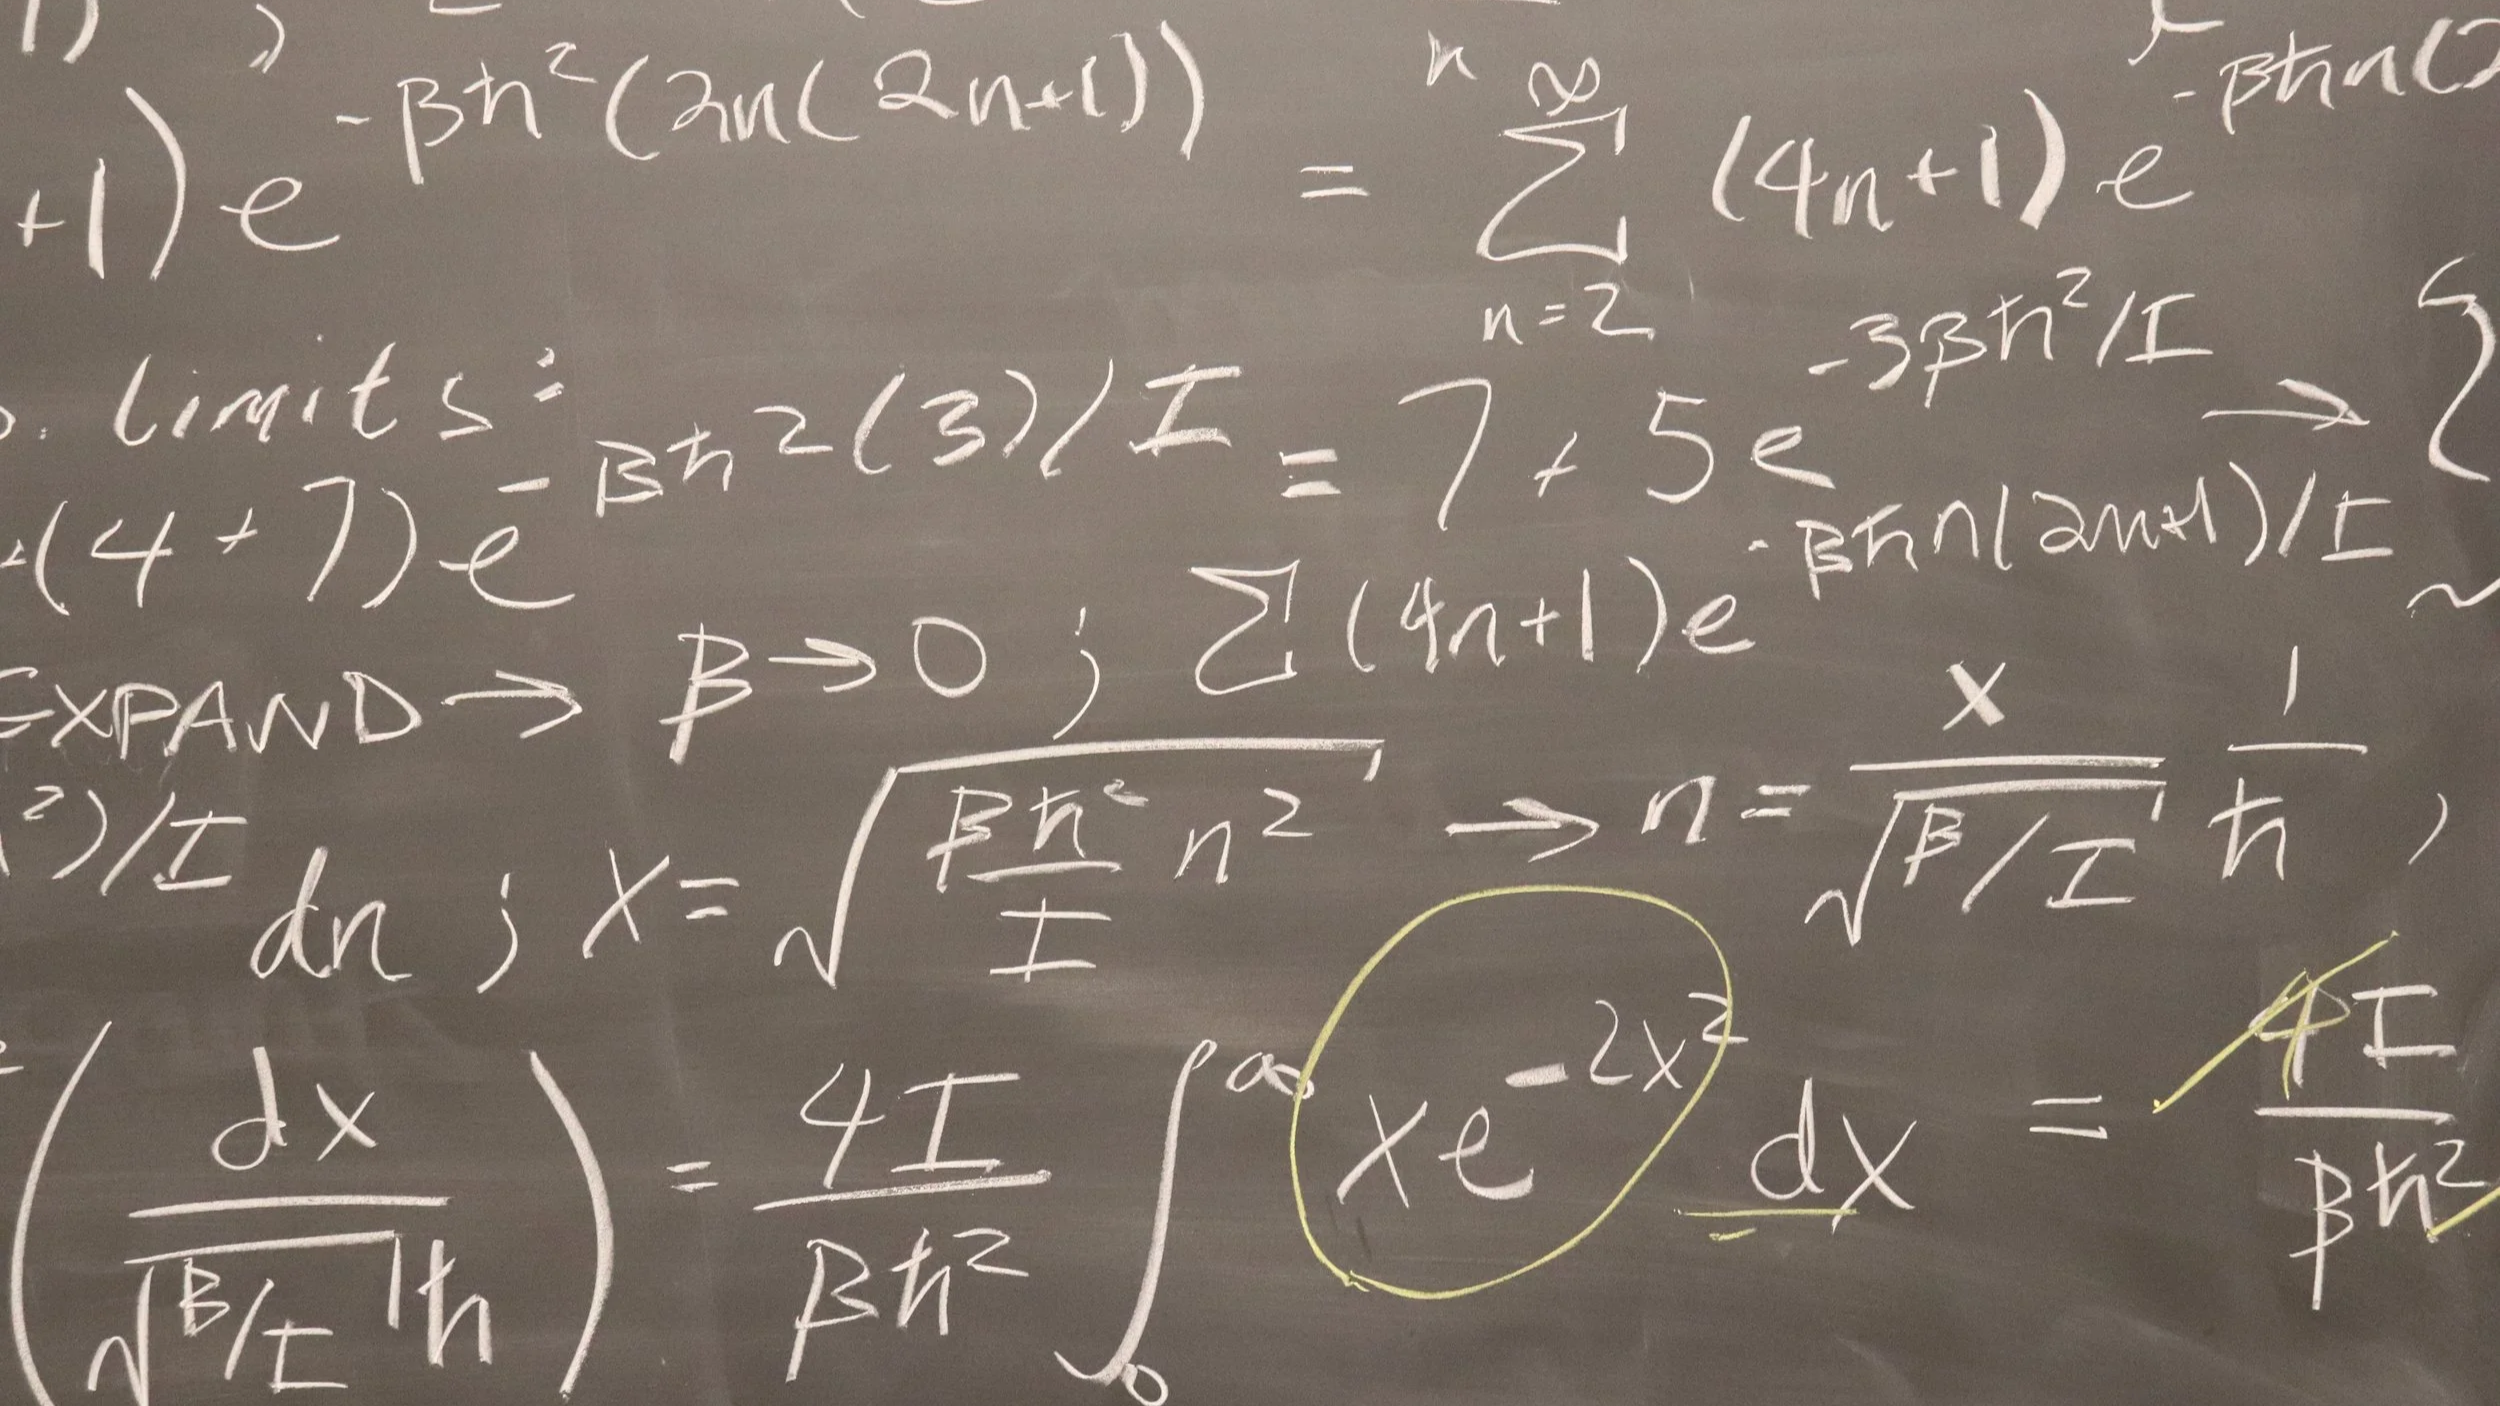 +1) e^{-βħ²(2n(2n+1))} = \sum_{n=2}^{∞} (4n+1) e^{-βħn(2
limits: = 7 + 5e^{-3βħ²/I} → {
(4+7) e^{-βħ²(3)/I}
EXPAND → β → 0 ; ∑ (4n+1) e^{-βħn(2n+1)/I} ~
²)/I dn ; x = \sqrt{\frac{βħ²}{I} n²} → n = \frac{x}{\sqrt{β/I}} \frac{1}{ħ} ,
( \frac{dx}{\sqrt{β/I} ħ} ) = \frac{4I}{βħ²} ∫_{0}^{∞} xe^{-2x²} dx = \frac{4I}{βħ²}